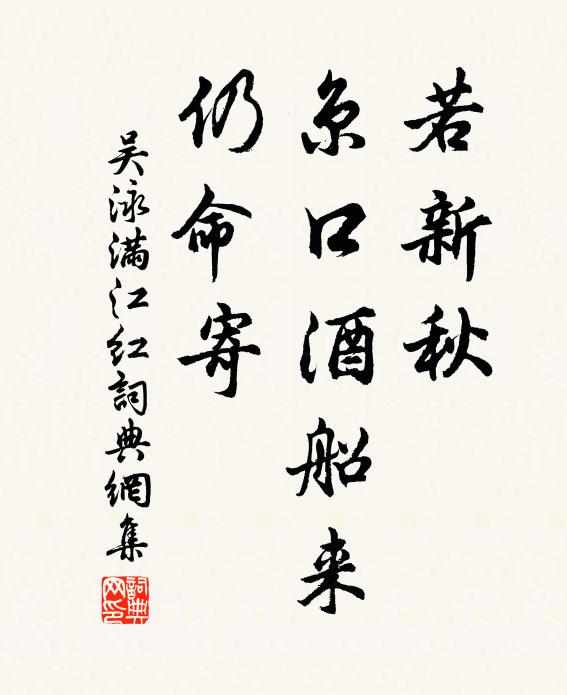 若新秋
京口酒船来
仍命寄
吴泳满江红詞典網集
詞典
网印